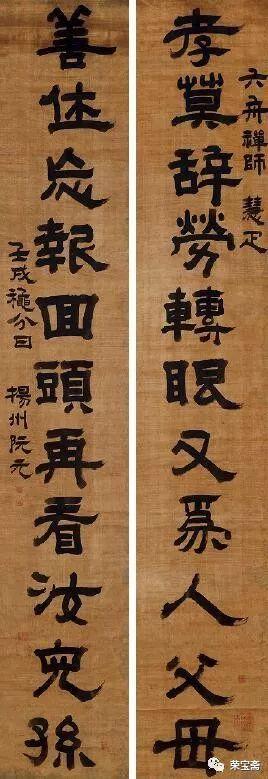 六舟禪師 慧疋
孝莫辭勞轉眼又為人父母
善休報回頭再看汝兒孫
壬戌穐分日 揚州阮元
荣宝斋